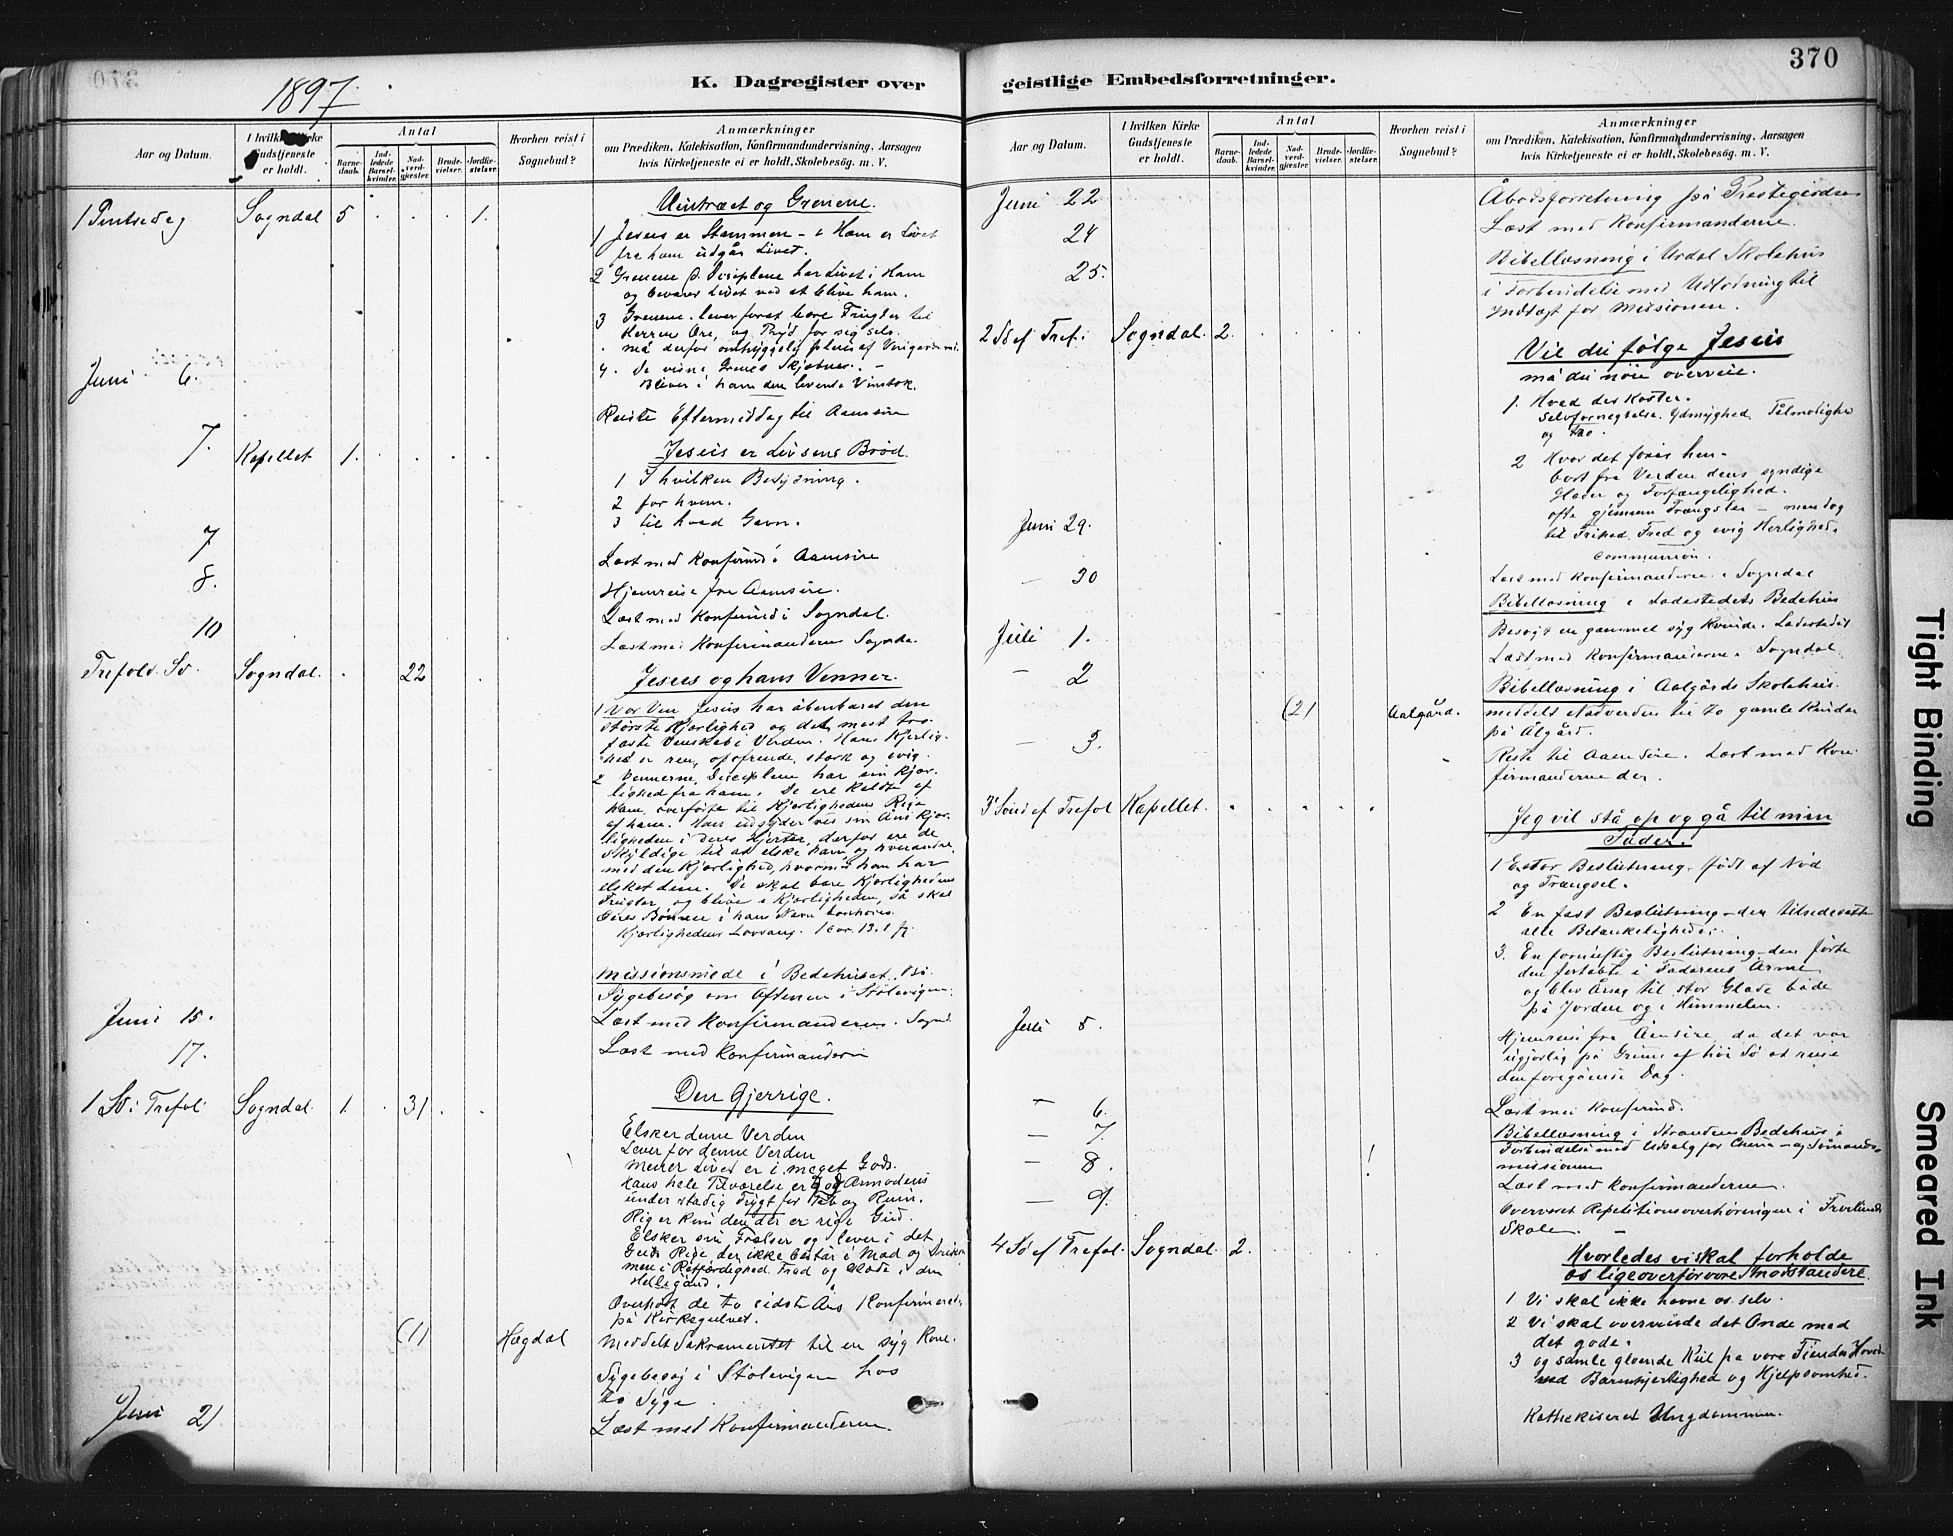 370
1897.
K. Dagregister over
geistlige Embedsforretninger.
Aar og Datum.
I hvilken Kirke Gudstjeneste er holdt.
Antal
Barne-daab.
Ind-ledede Barsel-kvinder.
Nad-verd-gjæster.
Brude-vielser.
Jordfæ-stelser.
Hvorhen reist i Sognebud?
Anmærkninger
om Prædiken, Katekisation, Konfirmandundervisning, Aarsagen
hvis Kirketjeneste ei er holdt, Skolebesög. m. V.
1 Pintsedag Sogndal 5 1.
Vintræet og Grenene.
1 Jesus er Stammen - i Ham er Livet
fra ham udgår Livet.
2 Grenene Disiplene har Livet i Ham
og bevarer Livet ved at blive i ham.
3 Grenene lever forat bære Frugter til
Herren Ære, og Fryd for sig selv.
må derfor omhyggelig pleies af Vingårdsm.
4. De visne Grenes Skjæbne. -
Bliver i ham den levende Vinstok.
Juni 6.
Reiste Eftermiddag til Aamsire
7. Kapellet 1.
Jesus er Livsens Brød.
1 I hvilken Betydning.
2 for hvem.
3 til hvad Gavn.
7 Læst med Konfirmd i Aamsire
8. Hjemreise fra Aamsire.
Læst med Konfirmd i Sogndal.
10 Læst med Konfirmanderne Sogndal.
Trefold. Sø. Sogndal. 22
Jesus og hans Venner.
1 Vor Ven Jesus har åbenbaret den
største Kjærlighed og det mest tro-
faste Venskab i Verden. Hans Kjærlig-
hed er ren, opofrende, stærk og evig.
2 Vennerne, Disciplene har sin Kjær-
lighed fra ham. De ere kaldte af
Ham, overførte til Kjærlighedens Rige
af ham. Han udgyder ved sin Ånd Kjær-
ligheden i deres Hjerter, derfor ere de
skyldige til at elske ham og hverandre
med den Kjærlighed, hvormed han har
elsket dem. De skal bære Kjærlighedens
Frugter, og blive i Kjærligheden, så skal
deres Bønner i hans Navn bønhøres.
Kjærlighedens Lovsang. 1 Cor. 13.1 fg.
Missionsmøde i Bedehuset
Sygebesøg om Aftenen i Stølevigen.
Juni 15. Læst med Konfirmanderne. Sognd.
17. Læst med Konfirmanderne
1 Sø. i Trefol. Sogndal. 1. 31
Den Gjerrige.
Elsker denne Verden
Lever for denne Verden
Mener Livet er i meget Gods.
Hans hele Tilværelse er Armodens
under stadig Frygt for Tab og Ruin.
Rig er kun den der er rig i Gud.
Elsker sin Frelser og lever i det
Guds Rige der ikke består i Mad og Drikke
men i Retfærdighed Fred og Glæde i den
Helligånd.
Overhørt de to sidste Års Konfirmered.
på Kirkegulvet.
(1) Hægdal Meddelt Sakramentet til en syg Kone.
Sygebesøg i Stølevigen hos
to Syge.
Juni 21 Læst med Konfirmanderne.
Aar og Datum.
I hvilken Kirke Gudstjeneste er holdt.
Antal
Barne-daab.
Ind-ledede Barsel-kvinder.
Nad-verd-gjæster.
Brude-vielser.
Jordfæ-stelser.
Hvorhen reist i Sognebud?
Anmærkninger
om Prædiken, Katekisation, Konfirmandundervisning, Aarsagen
hvis Kirketjeneste ei er holdt, Skolebesög. m. V.
Juni 22 Åbodsforretning på Prestegården
24 Læst med Konfirmanderne.
25. Bibellæsning i Urdal Skolehus
i Forbindelse med Udlodning til
Indtægt for Missionen.
2 Sø ef Tref. Sogndal. 2.
Vil du følge Jesus
må du nøie overveie.
1. Hvad det koster.
Selvfornegtelse. Ydmyghed Tålmodighed
og Tro.
2 Hvor det fører hen -
bort fra Verden dens syndige
Glæder og Forfængelighed.
ofte gjennem Trængsler - men dog
til Frihed, Fred og evig Herlighed.
Communion.
Juni 29. Læst med Konfirmanderne i Sogndal
- 30 Bibellæsning i Ladestedets Bedehus
Juli 1. Besøgt en gammel syg Kvinde. Ladestedet
Læst med Konfirmanderne. Sogndal
- 2 Bibellæsning i Aalgårds Skolehus.
(2) Aalgård. meddelt Nadverden til to gamle Kvinder
på Ålgård.
- 3. Reiste til Aamsire. Læst med Kon-
firmanderne der.
3 Sønd ef Trefol Kapellet.
Jeg vil stå op og gå til min
Fader.
1 Beslutning, født af Nød
og Trængsel.
2 En fast Beslutning - der tilsidesatte
alle Betænkeligheder.
3. En fornuftig Beslutning - den førte
den fortabte i Faderens Arme
og blev Årsag til stor Glæde både
på Jorden og i Himmelen.
Juli 5. Hjemreise fra Åensire, da det var
ugjørlig på Grund af høi Sø at reise
den foregående Dag.
- 6. Læst med Konfirmd.
- 7. Bibellæsning i Strandens Bedehus i
Forbindelse med Udsalg for China - og Sømands-
missionen
- 8. 1 Læst med Konfirmanderne.
- 9. Overværet Repetitionsoverhøringen i
Skole. -
4 Sø ef Trefol. Sogndal. 2.
Hvorledes vi skal forholde
os ligeoverfor vore Modstandere.
1 Vi skal ikke hevne os selv.
2 Vi skal overvinde det Onde med
det gode.
3 og samle gloende Kul på vore Fienders Hoved
med Barmhjertighed og Hjelpsomhed.
Kathekiseret Ungdommen.
Tight Binding
Smeared Ink